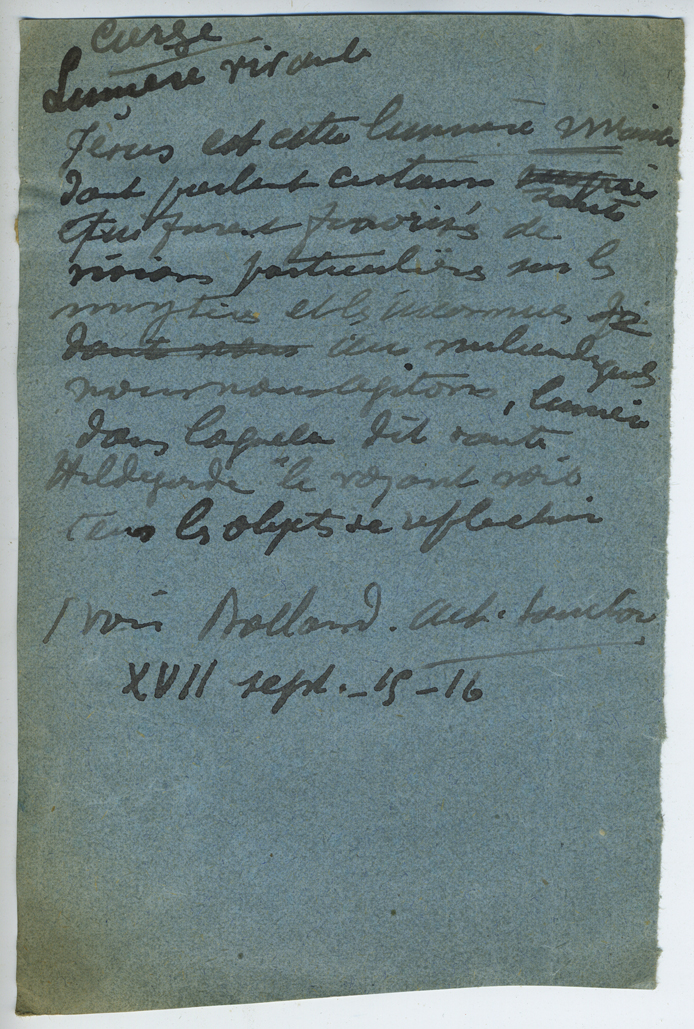 Lumiere vivante
Jésus est cette lumiere vivante
dont parlent certains
saints
qui furent favorisés de
visions particulières sur les
mystères et les inconnus
dont nous au milieu desquels
nous nous agitons, lumière
dans laquelle dit sainte
Hildegarde "le voyant voit
tous les objets se réfléchir
Voir Bolland. act. sanctor.
XVII sept. - 15 - 16